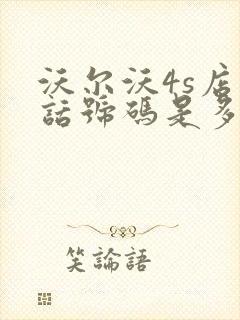 沃尔沃4s店
話號碼是多
笑論語